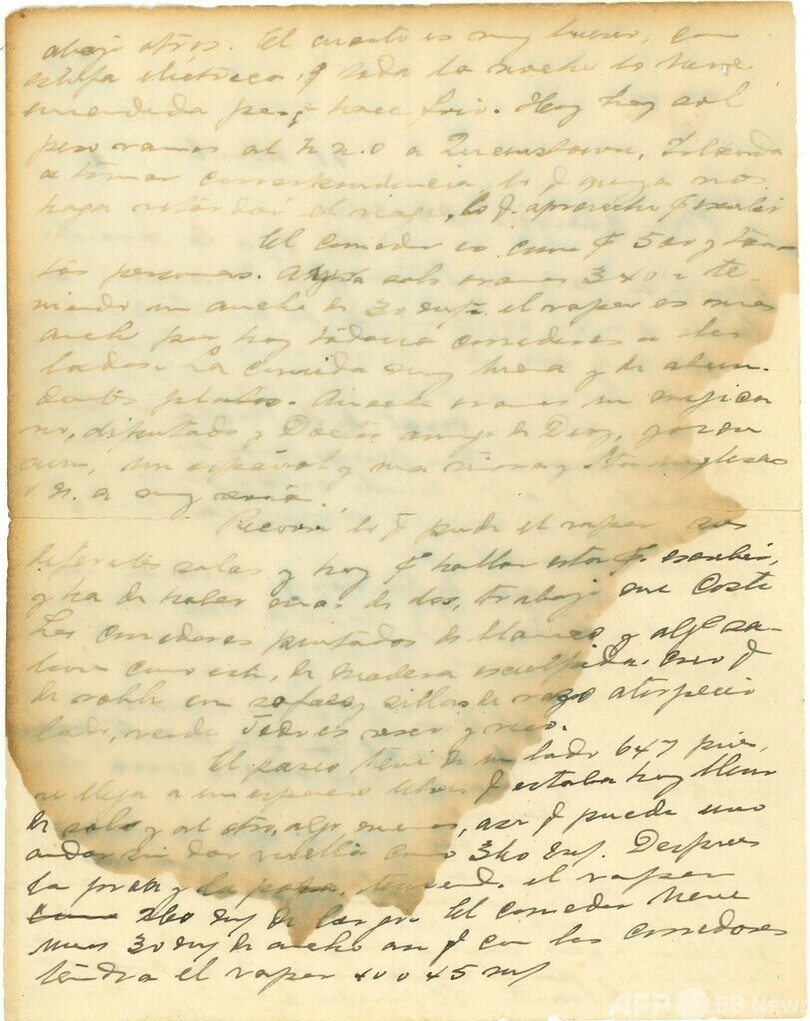 abajo otros. El cuarto es muy bueno, con
estufa electrica, y toda la noche la tuve
encendida pues hace frio. Hoy hay sol
pero vamos al N.N.O a Queenstown, Irlanda
a tomar correspondencia, lo q quiza nos
haga retardar el viage, lo q. aprovecho p escribir
El comedor es como p 500 y tan-
tas personas. Ahora solo vamos 340 u te-
niendo un ancho de 30 el vapor es mas
ancho pues hay todavia corredores a los
lados. La comida muy buena y de abun-
dantes platos. vamos un mejica
no, diputado y Doctor amigo de Diaz,
un español y una
a my
Recorri lo q pude el vapor sus
diferentes salas y hoy p hallar esta p. escribir,
y ha de haber mas de dos, trabajo me costo
Los corredores pintados de blanco y alg sa-
lones como este, de madera esculpida. creo q
de roble con sofaes y sillas de raso aterciope
lado, verde Todo es y rico.
El paseo tiene de un lado 647 pies,
se llega a un espacio libre. q estaba hoy lleno
de sol y al otro, algo menos, asi q puede uno
andar sin dar vuelta como 340 Despues
la proa y la popa. teniendo el vapor
260 de largo El comedor tiene
unos 30 de ancho asi q con los corredores
tendra el vapor 40 o 45
AFP BB News